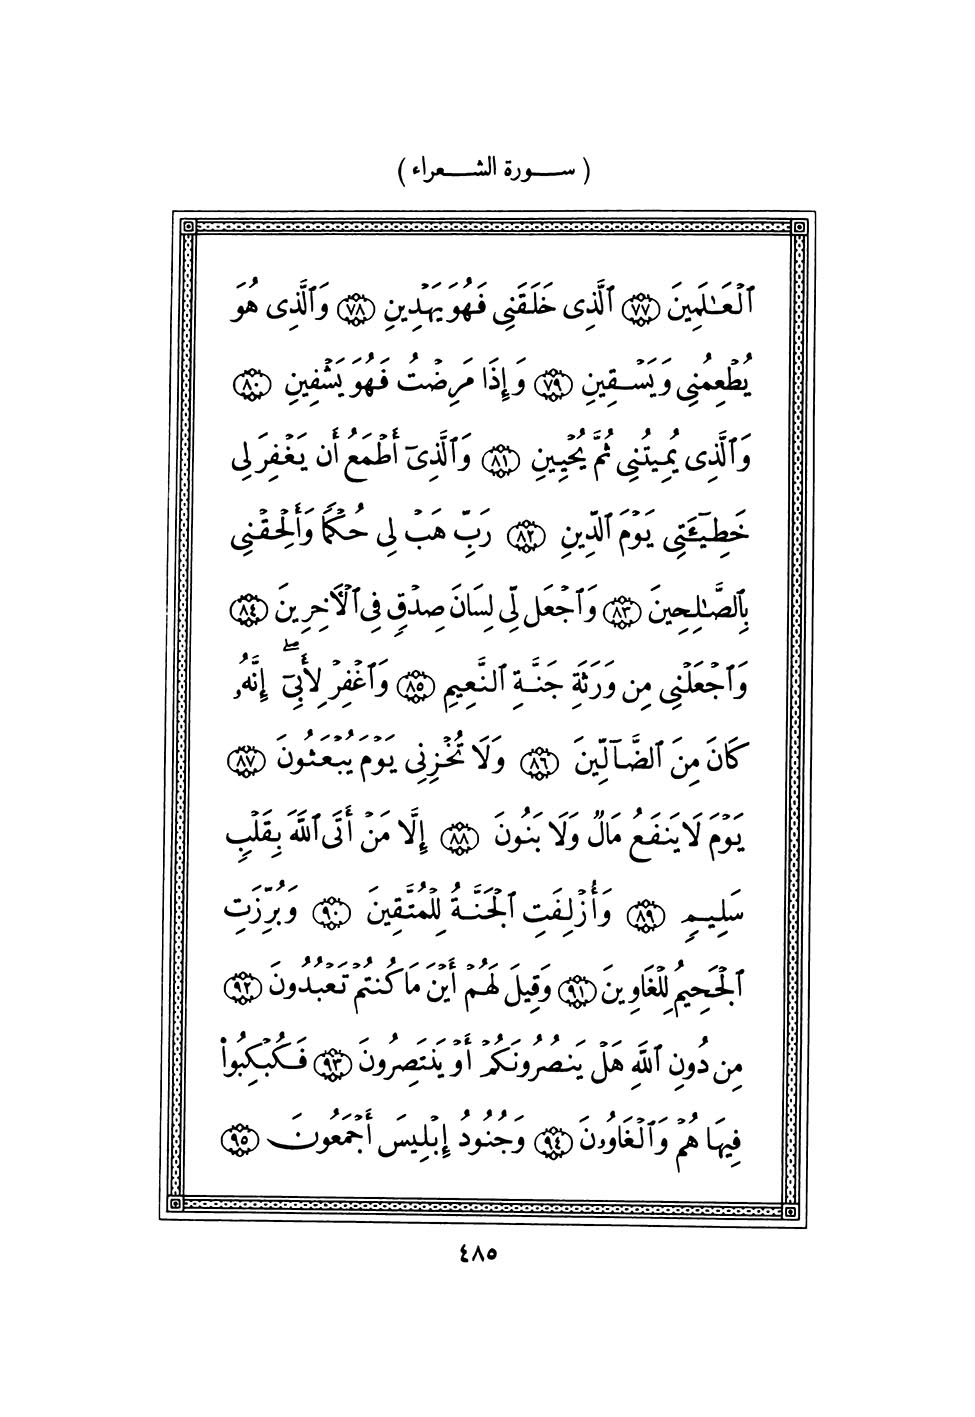 ( ســورة الشــعراء )
ٱلْعَـٰلَمِينَ ٧٧ ٱلَّذِى خَلَقَنِى فَهُوَ يَهْدِينِ ٧٨ وَٱلَّذِى هُوَ
يُطْعِمُنِى وَيَسْـقِينِ ٧٩ وَإِذَا مَرِضْتُ فَهُوَ يَشْفِينِ ٨٠
وَٱلَّذِى يُمِيتُنِى ثُمَّ يُحْيِينِ ٨١ وَٱلَّذِىٓ أَطْمَعُ أَن يَغْفِرَ لِى
خَطِيٓـَٔتِى يَوْمَ ٱلدِّينِ ٨٢ رَبِّ هَبْ لِى حُكْمًا وَأَلْحِقْنِى
بِٱلصَّـٰلِحِينَ ٨٣ وَٱجْعَل لِّى لِسَانَ صِدْقٍ فِى ٱلْأَخِرِينَ ٨٤
وَٱجْعَلْنِى مِن وَرَثَةِ جَنَّـةِ ٱلنَّعِيمِ ٨٥ وَٱغْفِرْ لِأَبِىٓ ۖ إِنَّهُۥ
كَانَ مِنَ ٱلضَّآلِّينَ ٨٦ وَلَا تُخْزِنِى يَوْمَ يُبْعَثُونَ ٨٧
يَوْمَ لَا يَنفَعُ مَالٌ وَلَا بَنُونَ ٨٨ إِلَّا مَنْ أَتَى ٱللَّهَ بِقَلْبٍ
سَلِيـمٍ ٨٩ وَأُزْلِفَتِ ٱلْجَنَّـةُ لِلْمُتَّقِينَ ٩٠ وَبُرِّزَتِ
ٱلْجَحِيمُ لِلْغَاوِينَ ٩١ وَقِيلَ لَهُمْ أَيْنَ مَا كُنتُمْ تَعْبُدُونَ ٩٢
مِن دُونِ ٱللَّهِ هَلْ يَنصُرُونَكُمْ أَوْ يَنتَصِرُونَ ٩٣ فَكُبْكِبُوا۟
فِيهَا هُمْ وَٱلْغَاوُۥنَ ٩٤ وَجُنُودُ إِبْلِيسَ أَجْمَعُونَ ٩٥
٤٨٥